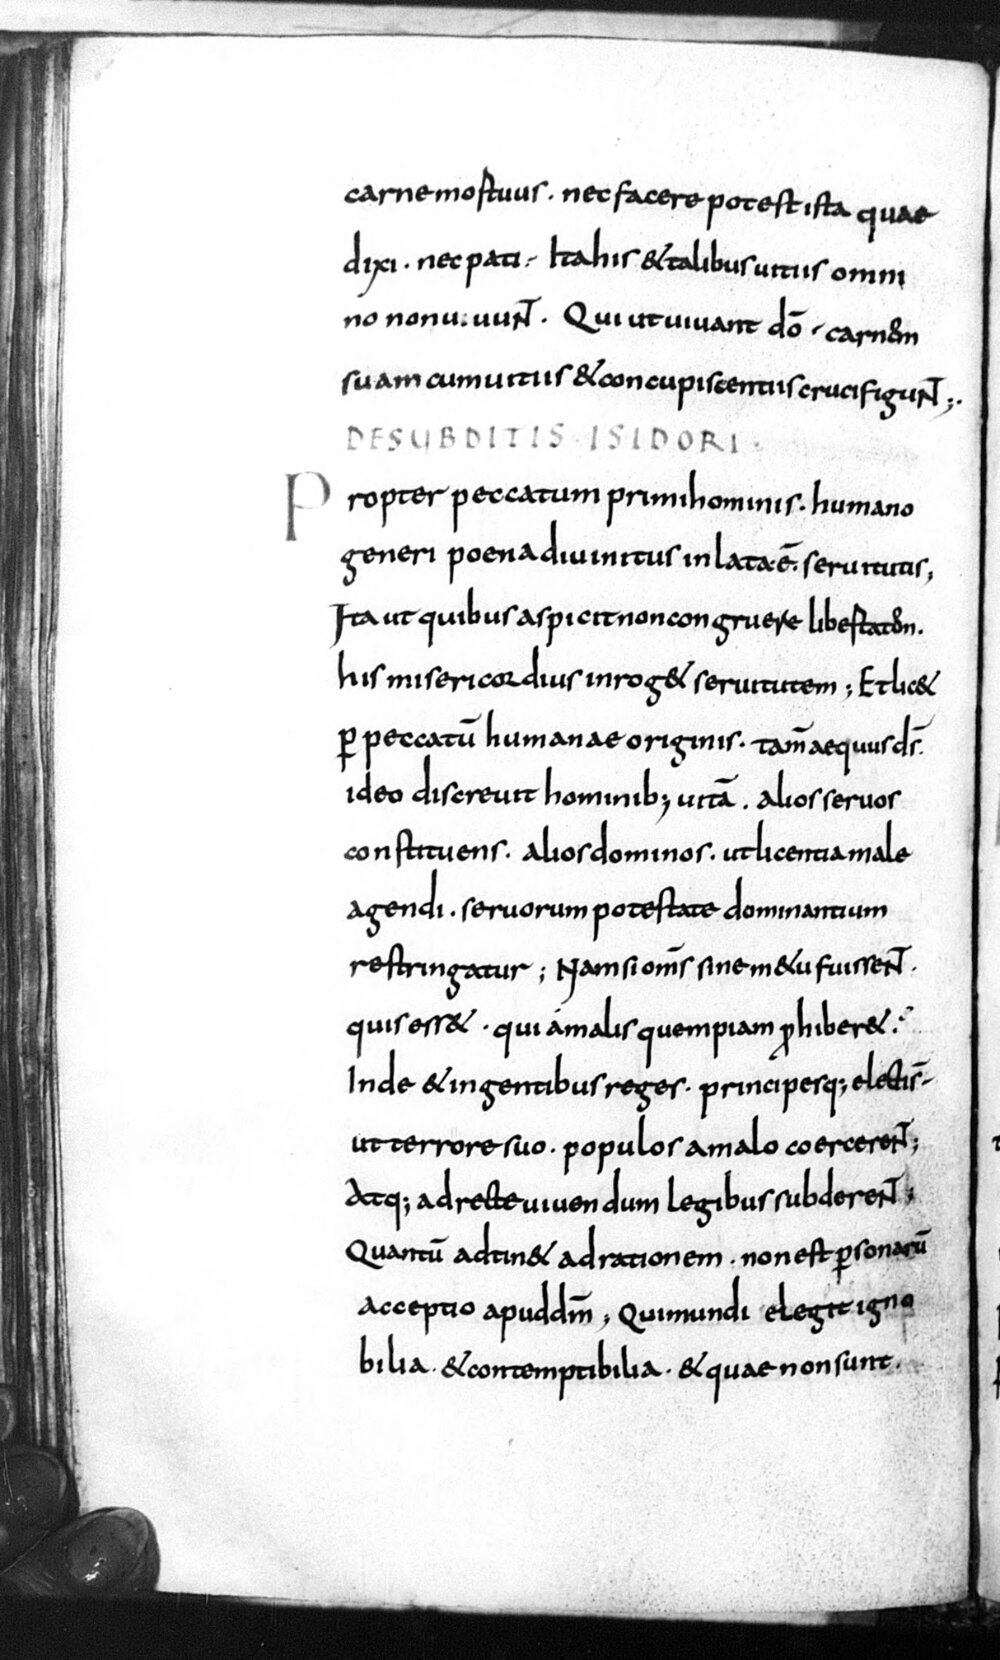 carne mortuus . nec facere potest ista quae
dixi . nec pati . Ita his & talibus uitiis omni
no non uiuuNT̄ . Qui ut uiuant dō . carnem
suam cum uitiis & concupiscentiis crucifiguNT̄ ;.
DE SUBDITIS . ISIDORI .
Propter peccatum primi hominis . humano
generi poena diuinitus inlata ē . seruitutis ;
Ita ut quibus aspicit non congruere libertatem .
his misericordius inrog& seruitutem ; Et lic&
p̱ peccatū humanae originis . tam̄ aequus ds̄ .
ideo discreuit hominib; uitā . alios seruos
constituens . alios dominos . ut licentia male
agendi . seruorum potestate dominantium
restringatur ; Nam si om̄s sine m&u fuisseNT̄ .
quis ess& . qui á malis quempiam ꝓhiber& .
Inde & in gentibus reges . principesq; electi s̄
ut terrore suo . populos a malo coercereNT̄ ;
Atq; ad recte uiuendum legibus subdereNT̄ ;
Quantū adtin& ad rationem . non est ꝑsonarū
acceptio apud dm̄ ; Qui mundi elegit igno
bilia . & contemptibilia . & quae non sunt .